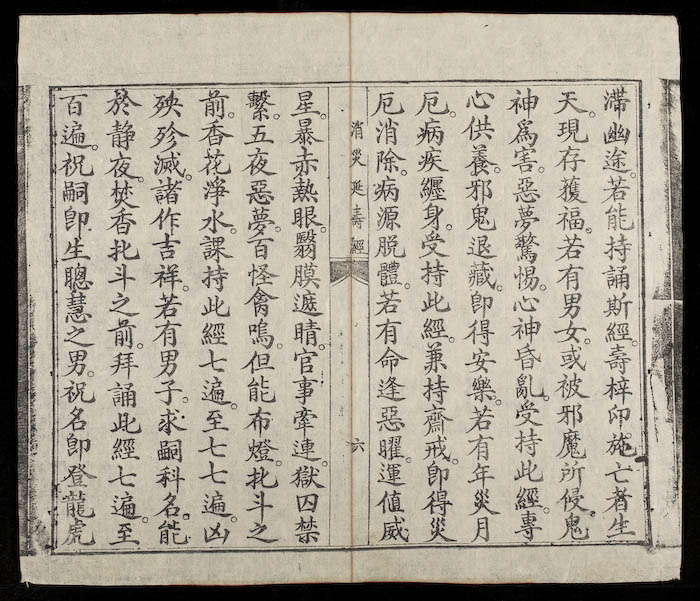 滯幽途。若能持誦斯經。壽梓印施亡者生
天。現存獲福。若有男女。或被邪魔所侵。鬼
神爲害。惡夢驚惕。心神昏亂。受持此經。專
心供養。邪鬼退藏。卽得安樂。若有年災月
厄。病疾纏身。受持此經。兼持齋戒。卽得災
厄消除。病源脫體。若有命逢惡曜。運值威
消災延壽經
六
星。暴赤熱眼。翳膜遮睛。官事牽連。獄囚禁
繫。五夜惡夢。百怪禽鳴。但能布燈。北斗之
前。香花淨水。課持此經七遍。至七七遍。凶
殃殄滅。諸作吉祥。若有男子。求嗣科名。能
於静夜。焚香北斗之前。拜誦此經七遍。至
百遍。祝嗣卽生聰慧之男。祝名卽登龍虎